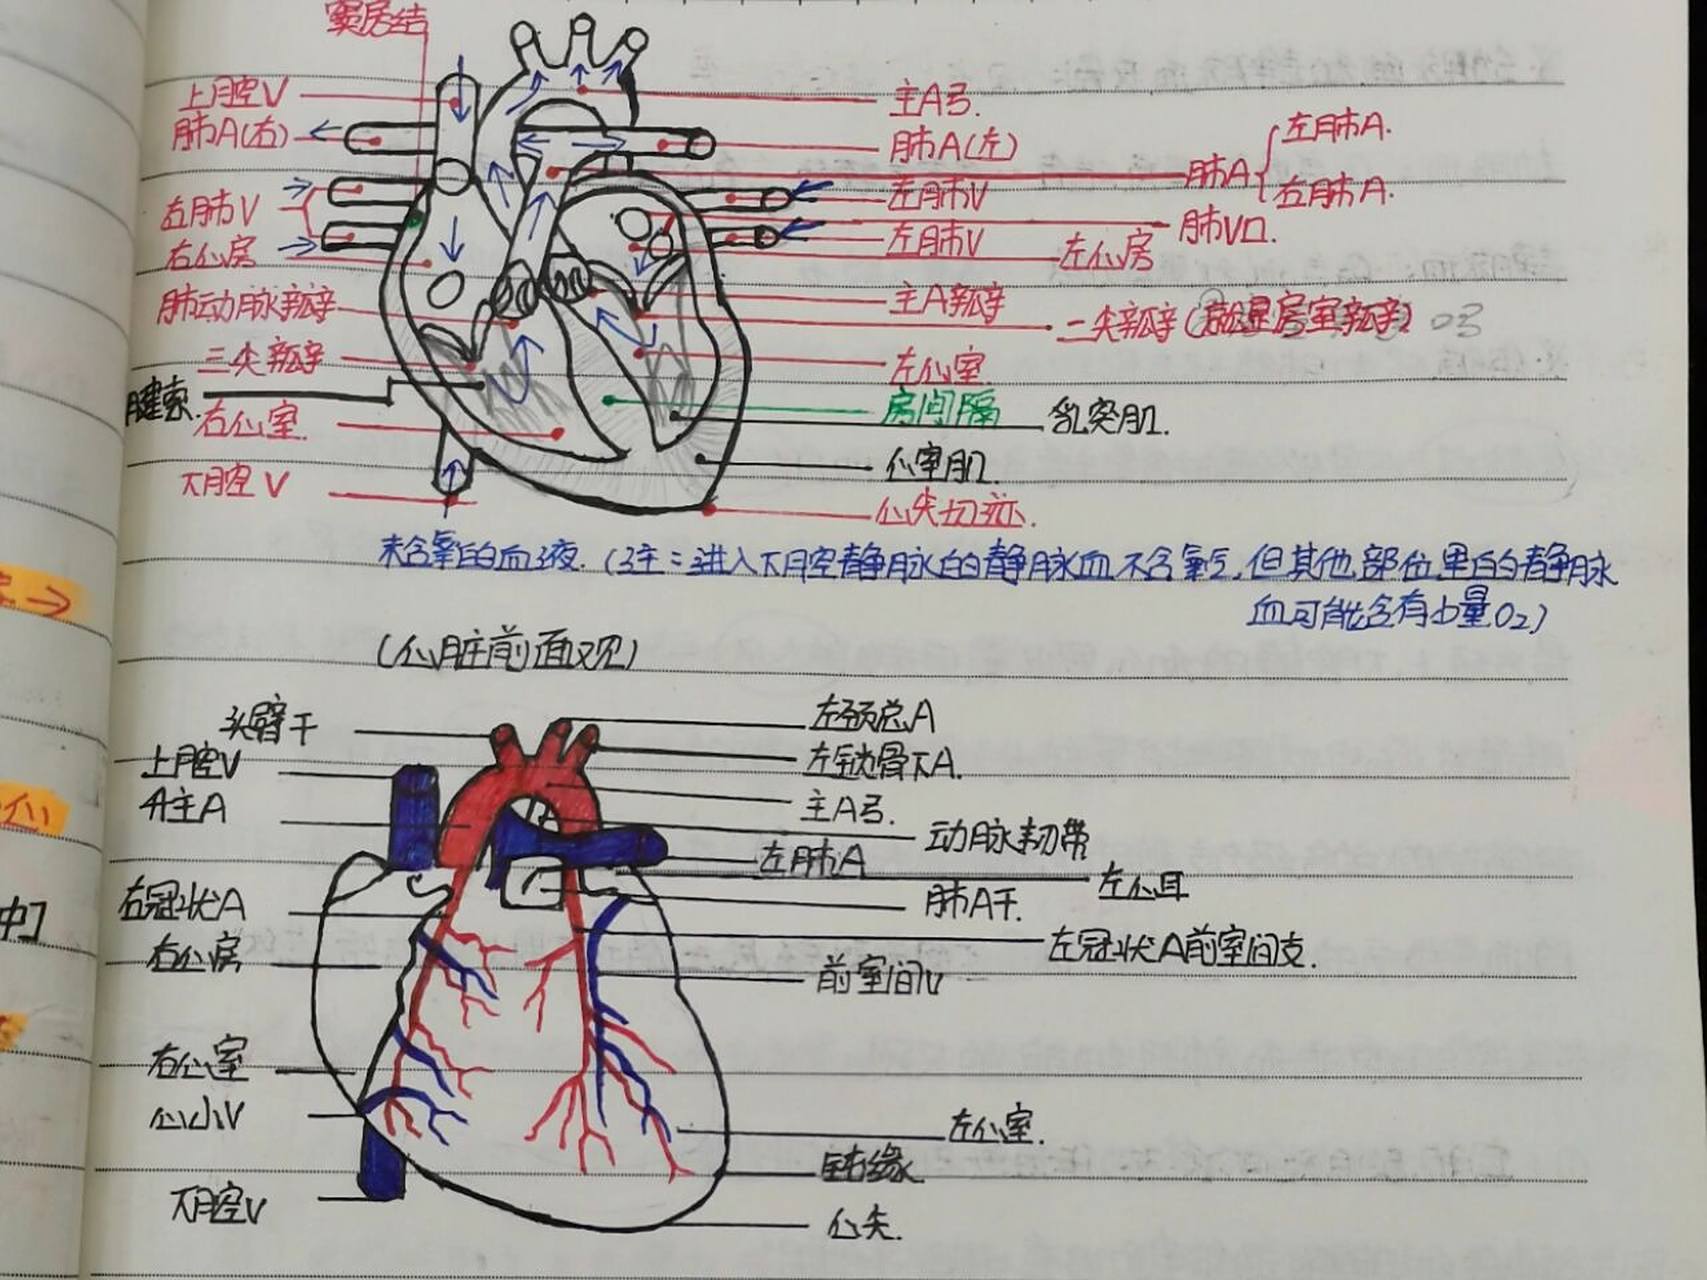 窦房结
上腔V
主A弓.
肺A(右)
肺A(左)
肺A
左肺A.
右肺A.
右肺V
左肺V
肺V口.
右心房
左肺V
左心房
肺动脉瓣
主A瓣
二尖瓣(就是房室瓣)
三尖瓣
左心室
腱索.
右心室.
房间隔
乳突肌.
心室肌.
下腔V
心尖切迹.
未含氧的血液.(注:进入下腔静脉的静脉血不含氧气,但其他部位里的静脉
血可能含有少量O2)
(心脏前面观)
头臂干
左颈总A
上腔V
左锁骨下A.
升主A
主A弓.
动脉韧带
左肺A
左心耳
右冠状A
肺A干.
右心房
左冠状A前室间支.
前室间V
右心室
心小V
左心室.
下腔V
心尖.